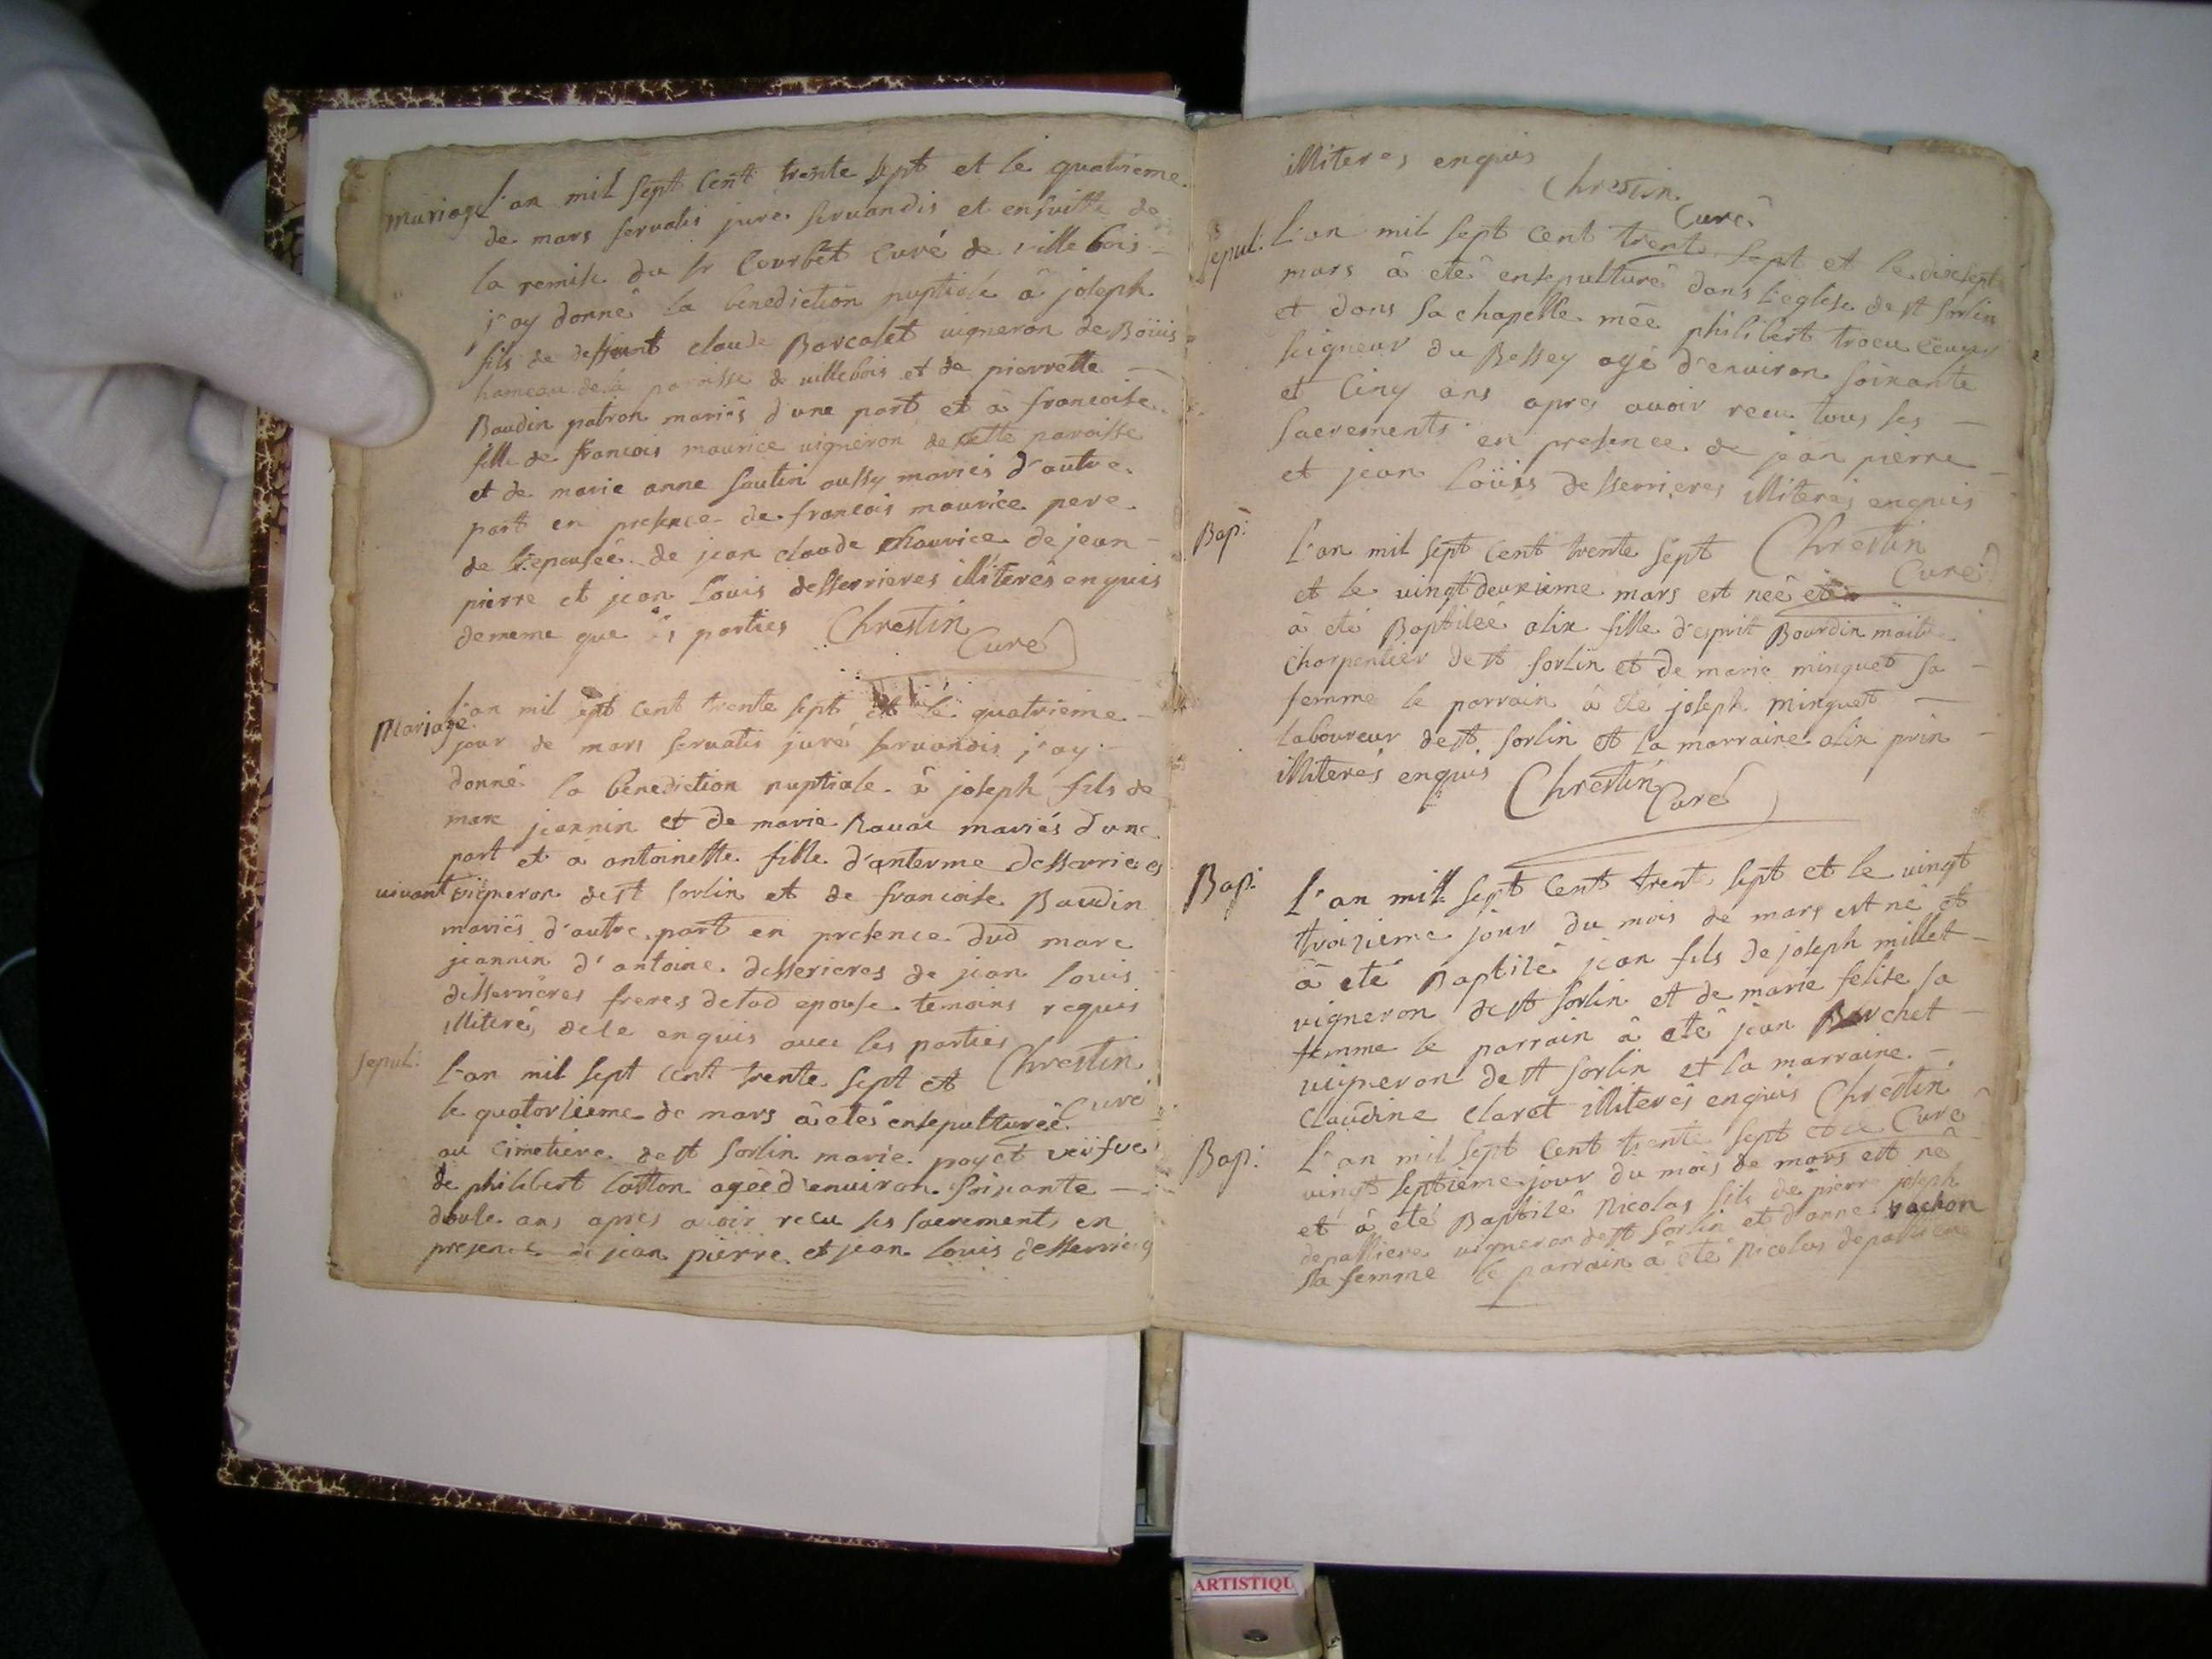 Mariage L'an mil sept cent trente sept et le quatrieme
de mars servatis jure servandis et ensuitte de
la remise du sr Courbet curé de villebois
j'ay donné la benediction nuptiale â joseph
fils de deffunt claude Barcalet vigneron de Boüis
hameau de la paroisse de villebois et de pierrette
Baudin patron mariés d'une part et â francoise
fille de francois maurice vigneron de cette paroisse
et de marie anne sautin aussy mariés d'autre
part en presence de francois maurice pere
de l'epousée de jean claude Maurice de jean
pierre et jean Louis desserrieres illiterés enquis
dememe que les parties Chrestin
Curé
Mariage
L'an mil sept cent trente sept et le quatrieme
jour de mars servatis juré servandis j'ay
donné la benediction nuptiale â joseph fils de
marc jeannin et de marie Ravat mariés d'une
part et a antoinette fille d'anterme desserrieres
vivant vigneron de st sorlin et de francoise Baudin
mariés d'autre part en presence dud marc
jeannin d'antoine desserieres de jean louis
desserrieres freres delad epouse temoins requis
illiterés de ce enquis avec les parties
Chrestin
Curé
sepul: L'an mil sept cent trente sept et
le quatorsieme de mars â etés ensepulturée
au cimetiere de st sorlin marie payet veüfve
de philibert Cotton agée d'environ soixante
douse ans apres avoir recu ses sacrements en
presence de jean pierre et jean louis desserrieres
illiteres enquis
Chrestin
Curé
sepul: L'an mil sept cent trente sept et le dixsept
mars â eté ensepulturé dans l'eglise de st sorlin
et dans sa chapelle mée philibert trocu ecuyer
seigneur du Bessey agé d'environ soixante
et cinq ans apres avoir recu tous ses
sacrements en presence de jean pierre
et jean Loüis desserrieres illiteres enquis
Chrestin
Curé
Bap: L'an mil sept cent trente sept
et le vingtdeuxieme mars est neé et
à eté Baptisée alix fille d'esprit Bourdin maitre
charpentier de st sorlin et de marie minguet sa
femme le parrain â eté joseph minguet
laboureur de st sorlin et la marraine alix prin
illiterés enquis Chrestin
Curé
Bap: L'an mill sept cent trente sept et le vingt
troizieme jour du mois de mars est né et
â eté Baptisé jean fils de joseph millet
vigneron de st sorlin et de marie felise sa
femme le parrain â eté jean Barchet
vigneron de st sorlin et la marraine
claudine claret illiterés enquis Chrestin
Curé
Bap: L'an mil sept cent trente sept et le
vingt septieme jour du mois de mars est né
et â eté Baptisé Nicolas fils de pierre joseph
depalliere vigneron de st sorlin et d'anne vachon
sa femme le parrain â eté Nicolas depalliere
ARTISTIQU